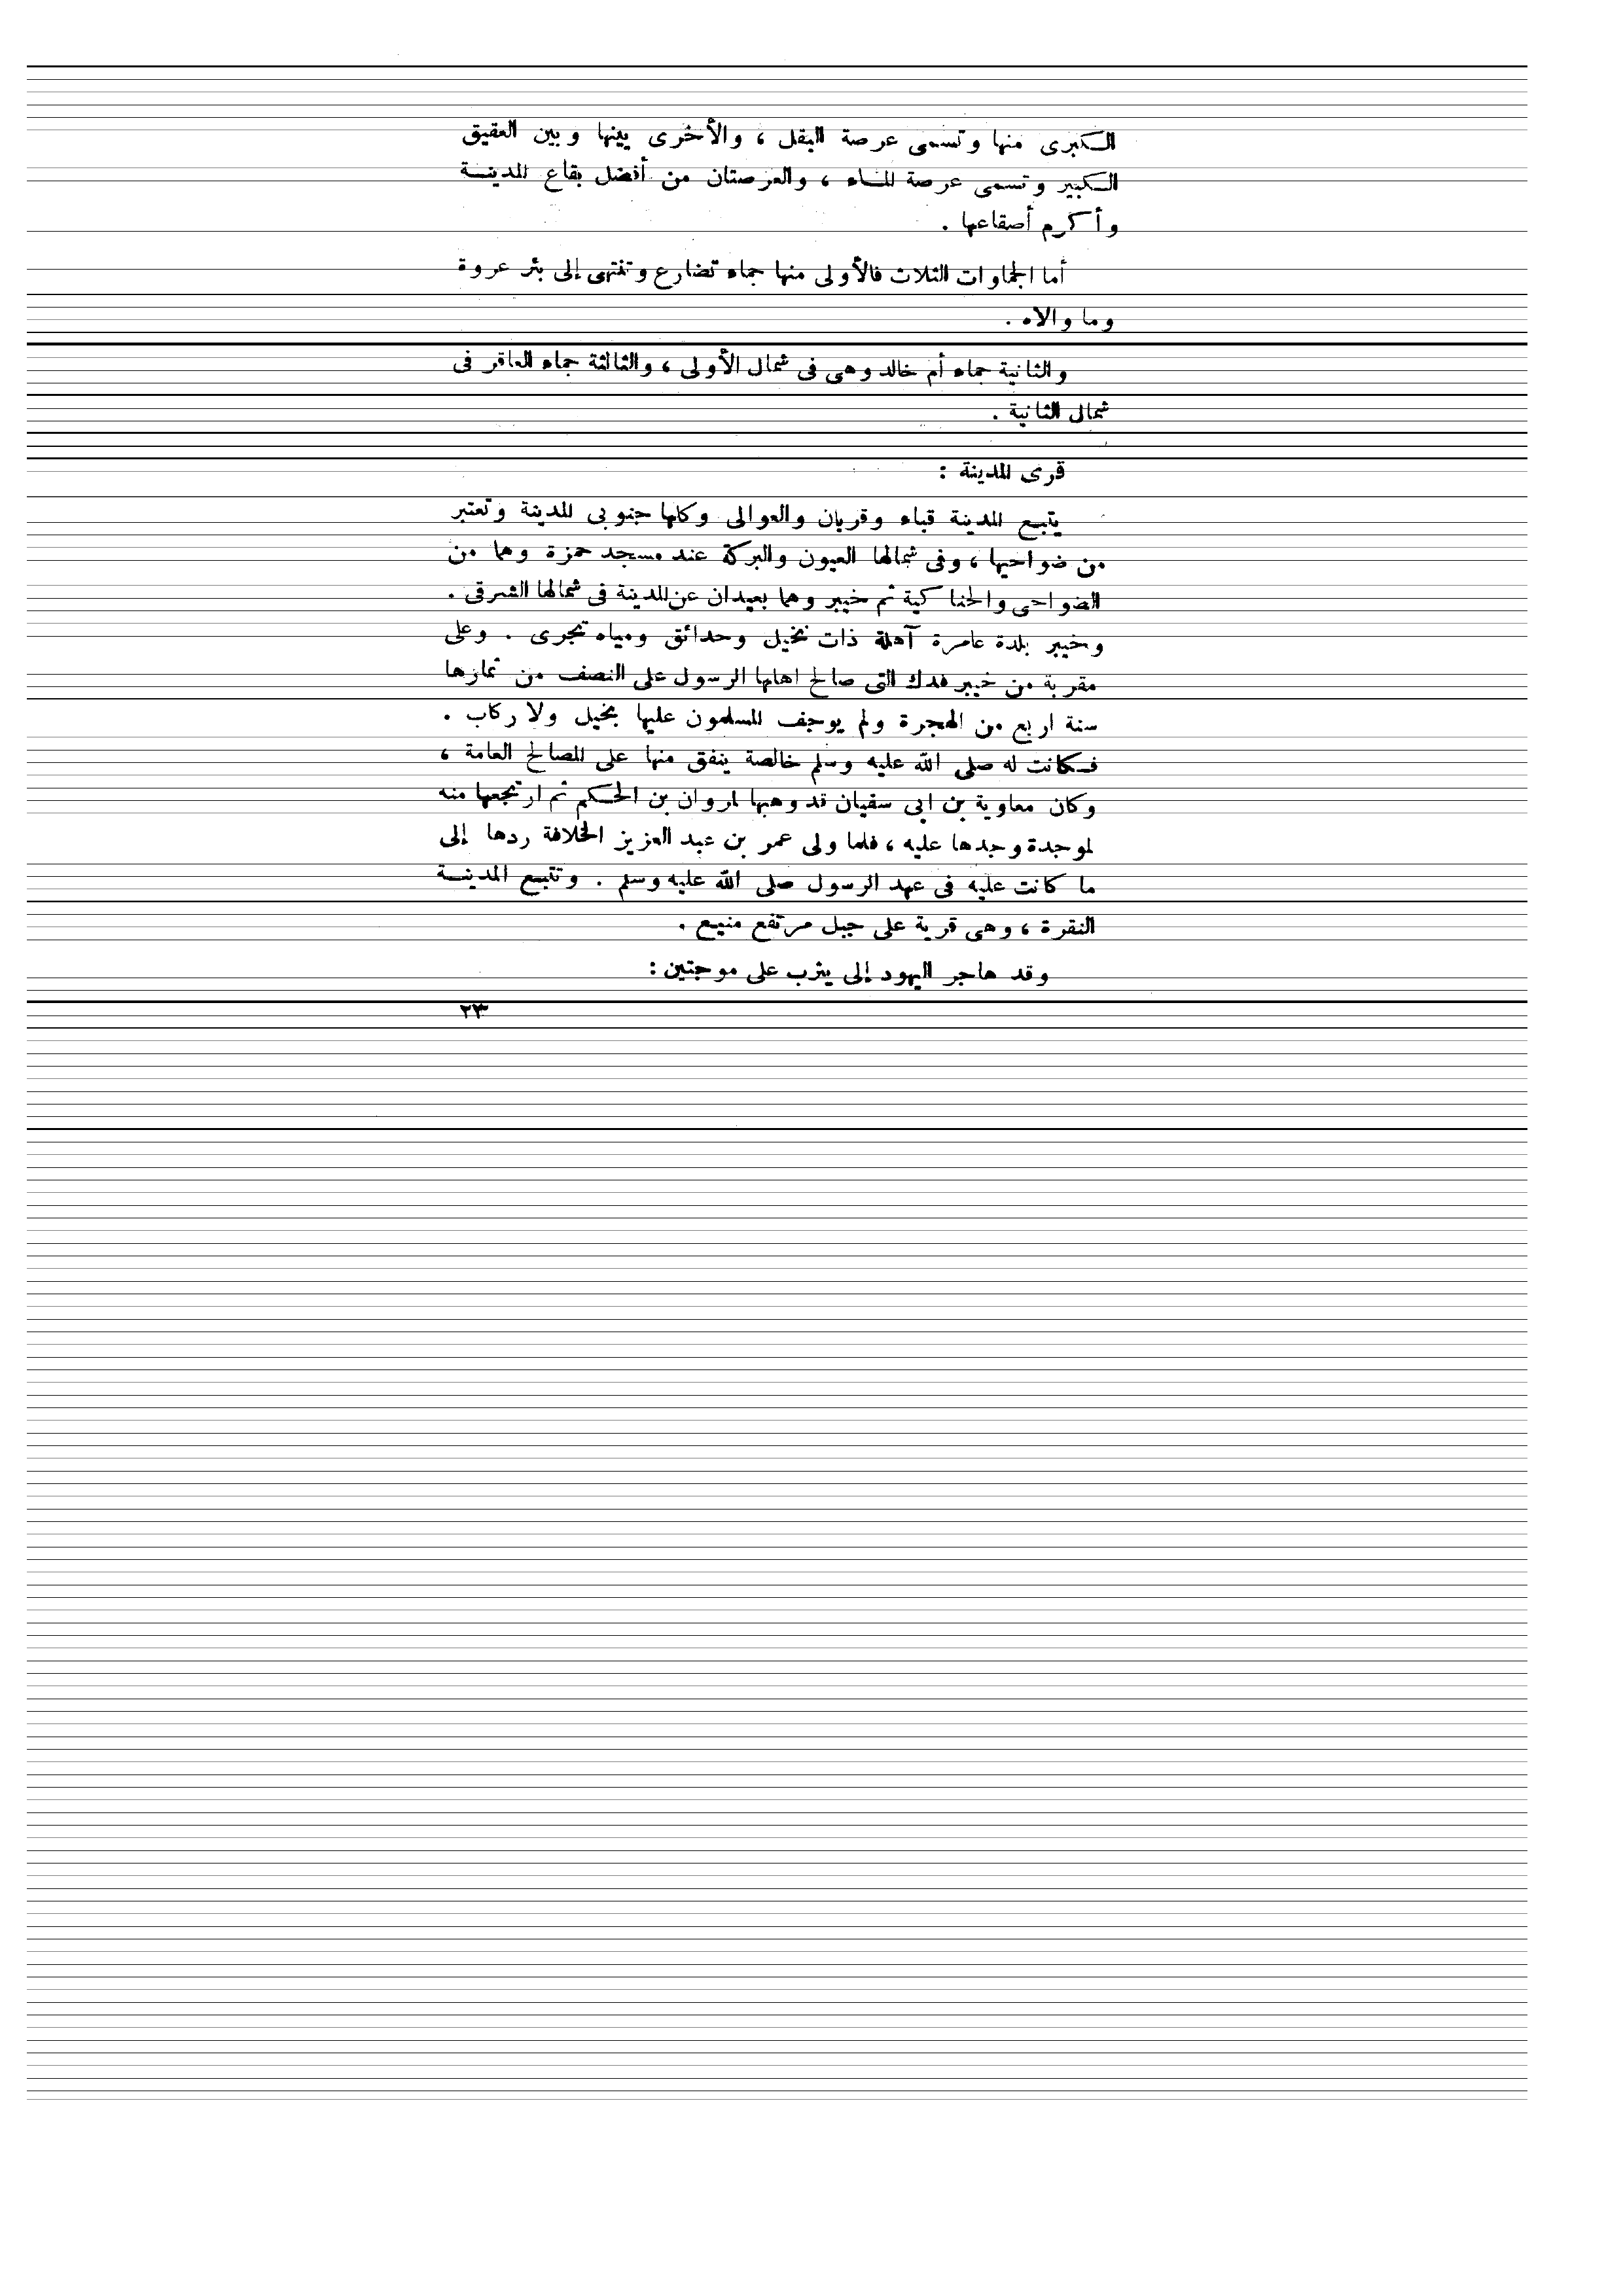 الكبرى منها وتسمى عرصة البقل ، والأخرى بينها وبين العقيق
الكبير وتسمى عرصة الماء ، والعرصتان من أفضل بقاع المدينة
وأكرم أصقاعها .
أما الجماوات الثلاث فالأولى منها جماء تضارع وتنتهى إلى بئر عروة
وما والاه .
والثانية جماء أم خالد وهى فى شمال الأولى ، والثالثة جماء العاقر فى
شمال الثانية .
قرى المدينة :
يتبع المدينة قباء وقربان والعوالى وكلها جنوبى المدينة وتعتبر
من ضواحيها ، وفى شمالها العيون والبركة عند مسجد حمزة وهما من
الضواحى والحناكية ثم خيبر وهما بعيدان عن المدينة فى شمالها الشرقى .
وخيبر بلدة عامرة آهلة ذات نخيل وحدائق ومياه تجرى . وعلى
مقربة من خيبر فدك التى صالح اهلها الرسول على النصف من ثمارها
سنة اربع من الهجرة ولم يوجف المسلمون عليها بخيل ولا ركاب .
فكانت له صلى الله عليه وسلم خالصة ينفق منها على المصالح العامة ،
وكان معاوية بن ابى سفيان قد وهبها لمروان بن الحكم ثم ارتجعها منه
لموجدة وجدها عليه ، فلما ولى عمر بن عبد العزيز الخلافة ردها إلى
ما كانت عليه فى عهد الرسول صلى الله عليه وسلم . وتتبع المدينة
النقرة ، وهى قرية على جبل مرتفع منيع .
وقد هاجر اليهود إلى يثرب على موجتين :
٢٣